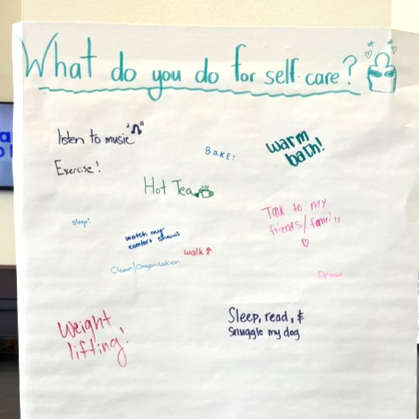 What do you do for self-care?
listen to music
BAKE!
warm
bath!
Exercise!
Hot Tea
Talk to my
friends/family
sleep!
watch my
comfort shows
walk
Clean/Organization
Draw
Weight
lifting!
Sleep, read, &
snuggle my dog